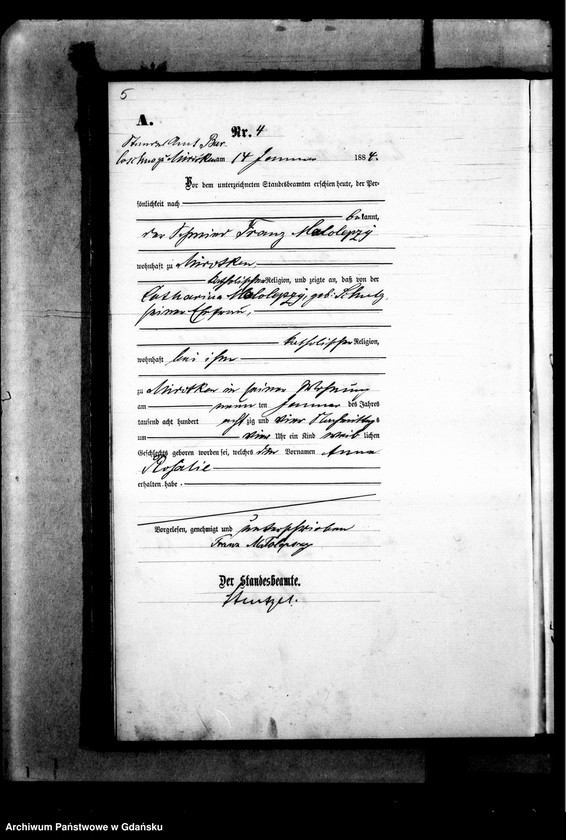 5
A.
Nr. 4
Standes Amt Bar
am 14 Januar 1884.
Vor dem unterzeichneten Standesbeamten erschien heute, der Per-
sönlichkeit nach
bekannt,
der Franz Malolepzy
wohnhaft zu Mirotken
katholischer Religion, und zeigte an, daß von der
Catharina Malolepzy, geb.
seiner Ehefrau,
katholischer Religion,
wohnhaft bei ihm
zu Mirotken in seiner Wohnung
am neun ten Januar des Jahres
tausend acht hundert acht zig und vier Nachmittags
um vier Uhr ein Kind weib lichen
Geschlechts geboren worden sei, welches den Vornamen Anna
Rosalie
erhalten habe.
Vorgelesen, genehmigt und unterschrieben
Franz
Der Standesbeamte.
Archiwum Państwowe w Gdańsku